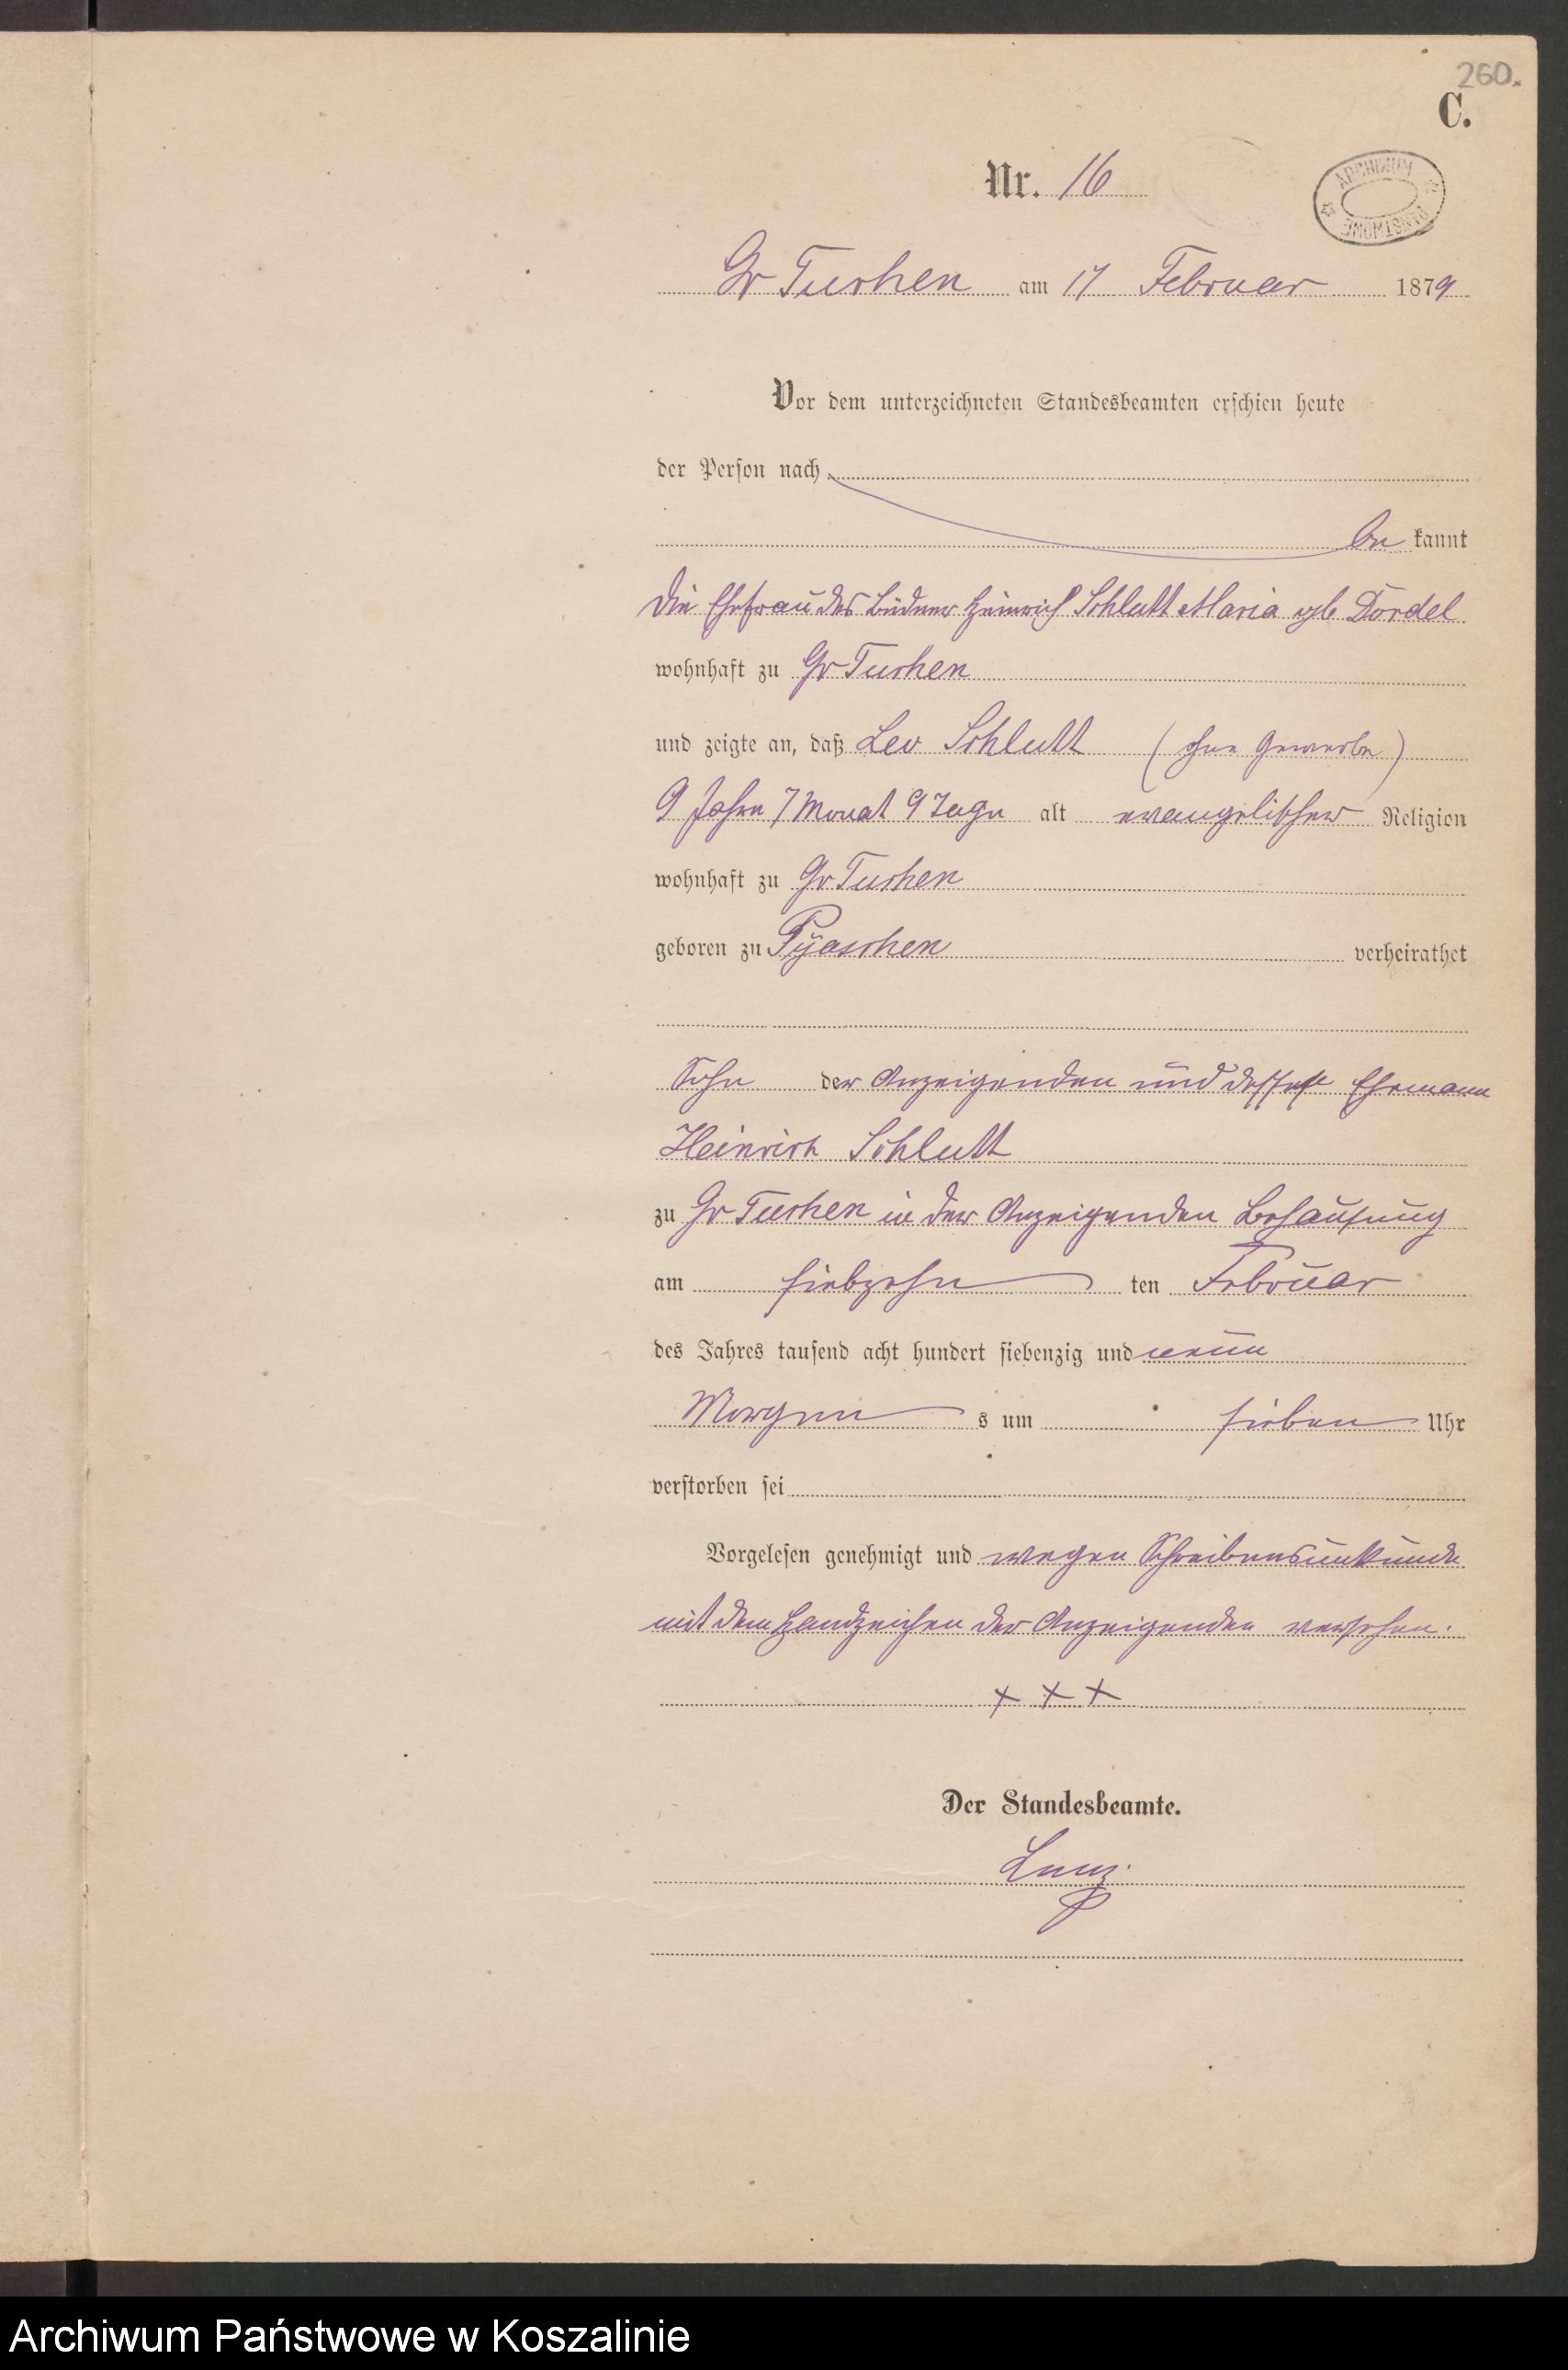 260.
C.
ARCHIWUM PAŃSTWOWE
Nr. 16
Gr Tuchen am 17 Februar 1879
Vor dem unterzeichneten Standesbeamten erschien heute
der Person nach
be kannt
die Ehefrau des Büdner Heinrich Schlutt Maria geb Dordel
wohnhaft zu Gr Tuchen
und zeigte an, daß Leo Schlutt (ohne Gewerbe)
9 Jahre 7 Monat 9 Tage alt evangelischer Religion
wohnhaft zu Gr Tuchen
geboren zu Pyaschen verheirathet
Sohn der Anzeigenden und dessen Ehemann
Heinrich Schlutt
zu Gr Tuchen in der Anzeigenden Behausung
am siebzehn ten Februar
des Jahres tausend acht hundert siebenzig und neun
Morgen s um sieben Uhr
verstorben sei
Vorgelesen genehmigt und wegen Schreibensunkunde
mit dem Handzeichen der Anzeigenden versehen.
+ + +
Der Standesbeamte.
Archiwum Państwowe w Koszalinie